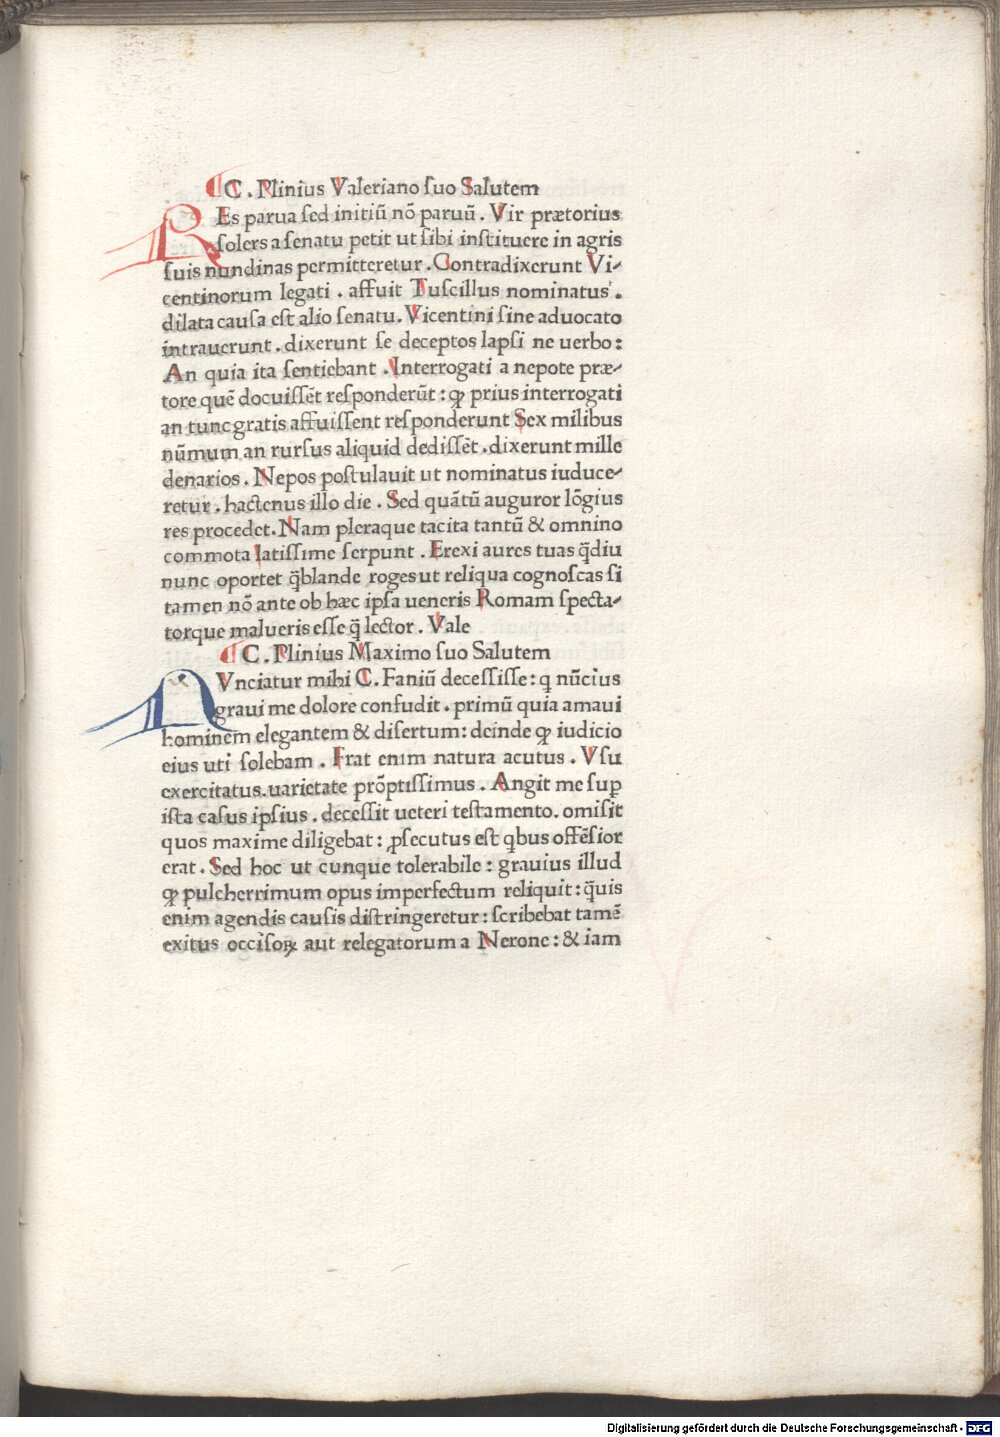 C. Plinius Valeriano suo Salutem
REs parua sed initiū nō paruū. Vir prætorius
solers a senatu petit ut sibi instituere in agris
suis nundinas permitteretur. Contradixerunt Vi-
centinorum legati. affuit Tuscillus nominatus.
dilata causa est alio senatu. Vicentini sine aduocato
intrauerunt. dixerunt se deceptos lapsi ne uerbo:
An quia ita sentiebant. Interrogati a nepote præ-
tore quē docuissēt responderūt: ꝙ prius interrogati
an tunc gratis affuissent responderunt Sex milibus
nūmum an rursus aliquid dedissēt. dixerunt mille
denarios. Nepos postulauit ut nominatus iuduce-
retur. hactenus illo die. Sed quātū auguror lōgius
res procedet. Nam pleraque tacita tantū & omnino
commota latissime serpunt. Erexi aures tuas q̄diu
nunc oportet q̄blande roges ut reliqua cognoscas si
tamen nō ante ob hæc ipsa ueneris Romam specta-
torque malueris esse q̄ lector. Vale
C. Plinius Maximo suo Salutem
NVnciatur mihi C. Faniū decessisse: q nūcius
graui me dolore confudit. primū quia amaui
hominem elegantem & disertum: deinde ꝙ iudicio
eius uti solebam. Erat enim natura acutus. Vsu
exercitatus. uarietate prōptissimus. Angit me sup
ista casus ipsius. decessit ueteri testamento. omisit
quos maxime diligebat: ꝓsecutus est qbus offēsior
erat. Sed hoc ut cunque tolerabile: grauius illud
ꝙ pulcherrimum opus imperfectum reliquit: q̄uis
enim agendis causis distringeretur: scribebat tamē
exitus occisoꝝ aut relegatorum a Nerone: & iam
Digitalisierung gefördert durch die Deutsche Forschungsgemeinschaft - DFG